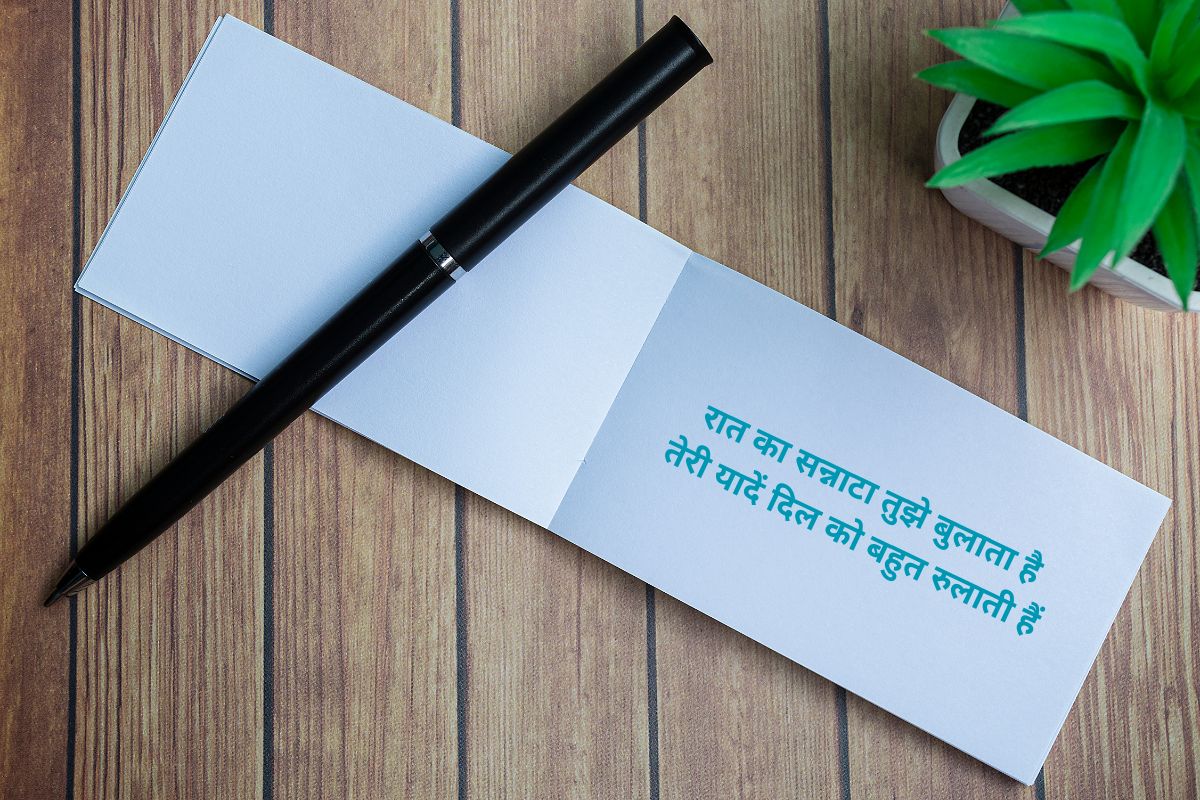 रात का सन्नाटा तुझे बुलाता है
तेरी यादें दिल को बहुत रुलाती हैं